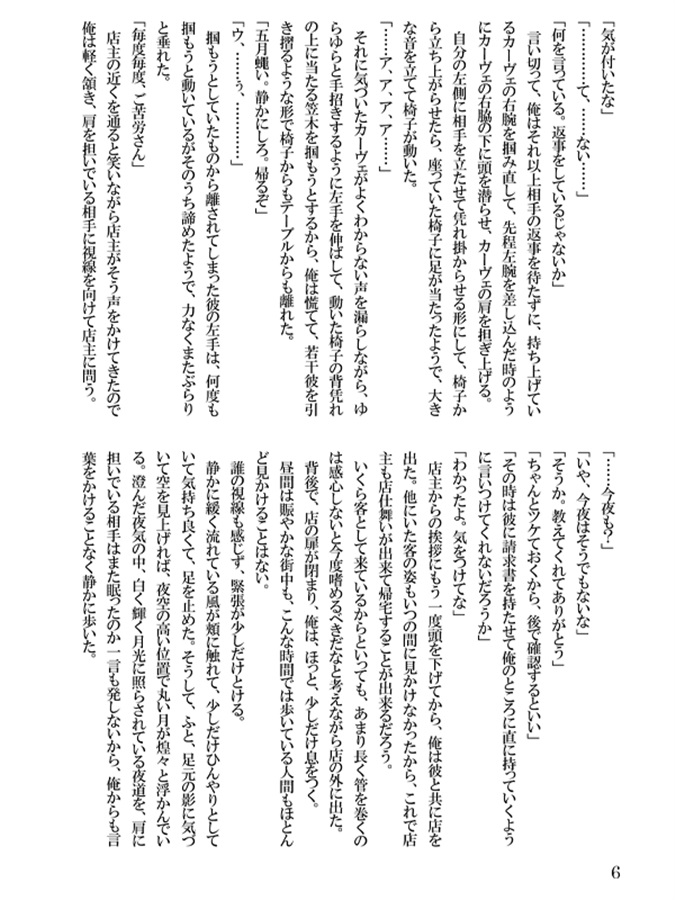 「気が付いたな」
「…………て、……ない……」
「何を言っている。返事をしているじゃないか」
　言い切って、俺はそれ以上相手の返事を待たずに、持ち上げてい
るカーヴェの右腕を掴み直して、先程左腕を差し込んだ時のよう
にカーヴェの右脇の下に頭を潜らせ、カーヴェの肩を担ぎ上げる。
　自分の左側に相手を立たせて凭れ掛からせる形にして、椅子か
ら立ち上がらせたら、座っていた椅子に足が当たったようで、大き
な音を立てて椅子が動いた。
「……ア、ア、ア……」
　それに気づいたカーヴェがよくわからない声を漏らしながら、ゆ
らゆらと手招きするように左手を伸ばして、動いた椅子の背凭れ
の上に当たる笠木を掴もうとするから、俺は慌てて、若干彼を引
き摺るような形で椅子からもテーブルからも離れた。
「五月蠅い。静かにしろ。帰るぞ」
「ウ、……ぅ、…………」
　掴もうとしていたものから離されてしまった彼の左手は、何度も
掴もうと動いているがそのうち諦めたようで、力なくまたぶらり
と垂れた。
「毎度毎度、ご苦労さん」
　店主の近くを通ると笑いながら店主がそう声をかけてきたので
俺は軽く頷き、肩を担いでいる相手に視線を向けて店主に問う。
「……今夜も？」
「いや、今夜はそうでもないな」
「そうか。教えてくれてありがとう」
「ちゃんとツケておくから、後で確認するといい」
「その時は彼に請求書を持たせて俺のところに直に持っていくよう
に言いつけてくれないだろうか」
「わかったよ。気をつけてな」
　店主からの挨拶にもう一度頭を下げてから、俺は彼と共に店を
出た。他にいた客の姿もいつの間に見かけなかったから、これで店
主も店仕舞いが出来て帰宅することが出来るだろう。
　いくら客として来ているからといっても、あまり長く管を巻くの
は感心しないと今度嗜めるべきだなと考えながら店の外に出た。
　背後で、店の扉が閉まり、俺は、ほっと、少しだけ息をつく。
　昼間は賑やかな街中も、こんな時間では歩いている人間もほとん
ど見かけることはない。
　誰の視線も感じず、緊張が少しだけとける。
　静かに緩く流れている風が頬に触れて、少しだけひんやりとして
いて気持ち良くて、足を止めた。そうして、ふと、足元の影に気づ
いて空を見上げれば、夜空の高い位置で丸い月が煌々と浮かんでい
る。澄んだ夜気の中、白く輝く月光に照らされている夜道を、肩に
担いでいる相手はまた眠ったのか一言も発しないから、俺からも言
葉をかけることなく静かに歩いた。
6